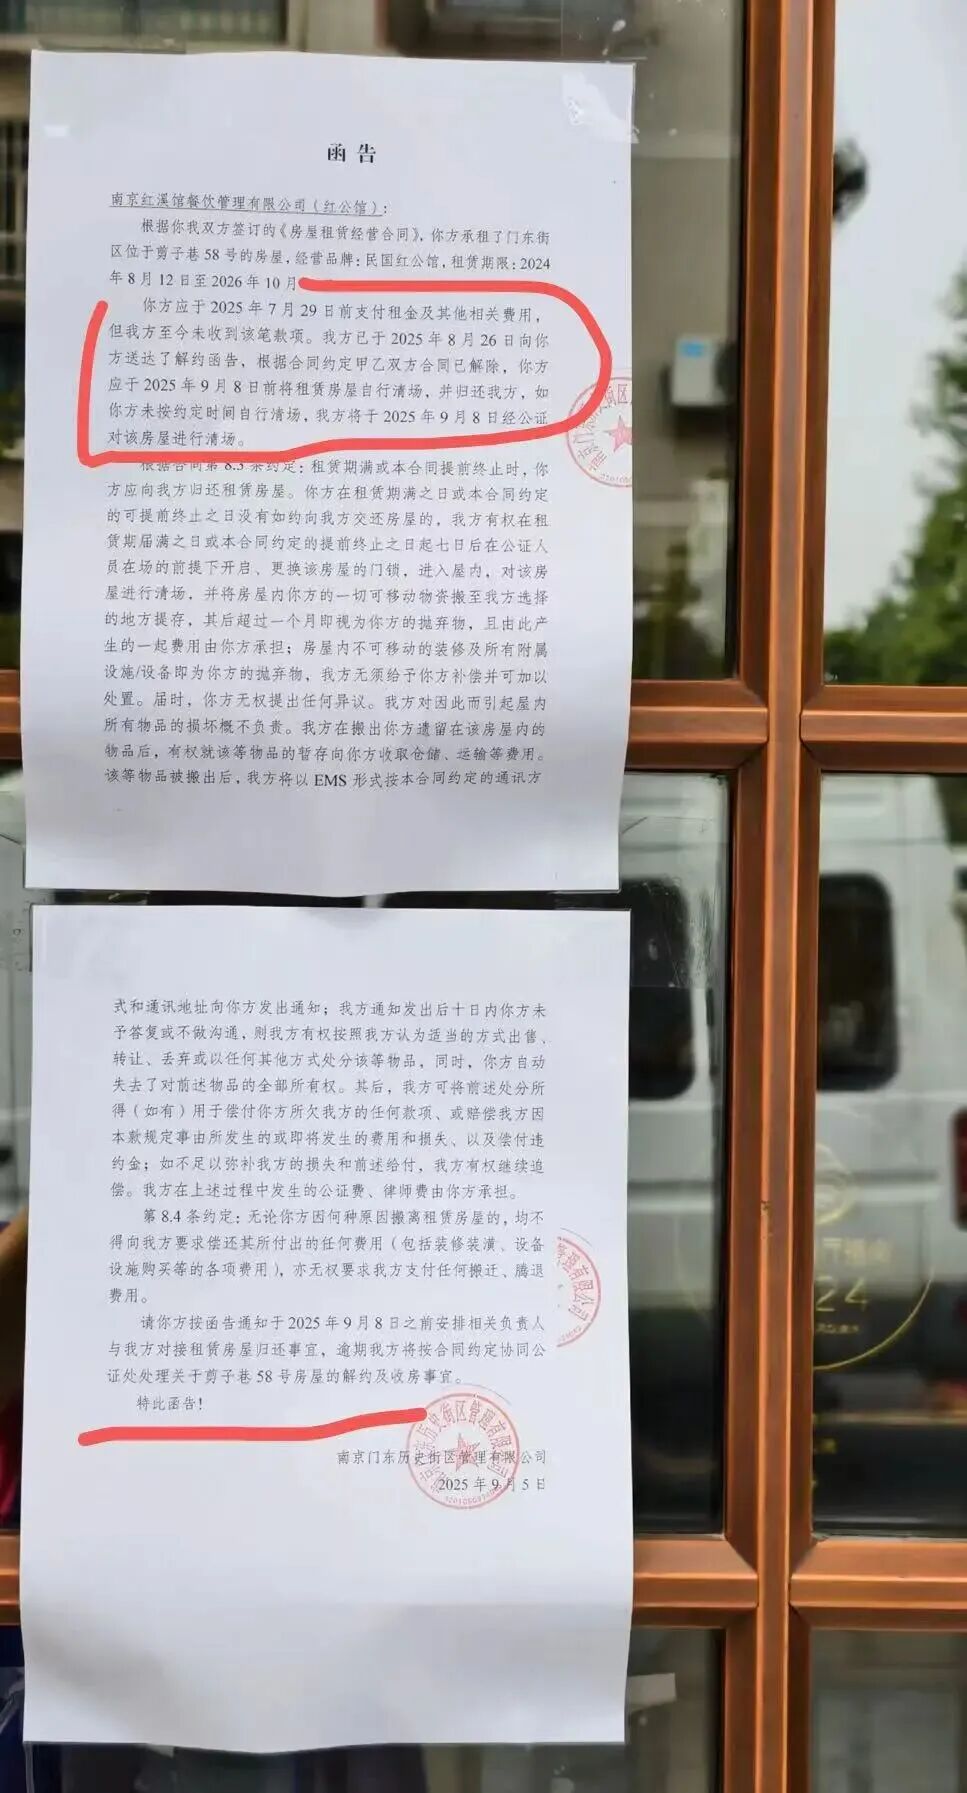 函告
南京红溪馆餐饮管理有限公司（红公馆）：
根据你我双方签订的《房屋租赁经营合同》，你方承租了门东街
区位于剪子巷 58 号的房屋，经营品牌：民国红公馆，租赁期限：2024
年 8 月 12 日至 2026 年 10 月
你方应于 2025 年 7 月 29 日前支付租金及其他相关费用，
但我方至今未收到该笔款项。我方已于 2025 年 8 月 26 日向你
方送达了解约函告，根据合同约定甲乙双方合同已解除，你方
应于 2025 年 9 月 8 日前将租赁房屋自行清场，并归还我方，如
你方未按约定时间自行清场，我方将于 2025 年 9 月 8 日经公证
对该房屋进行清场。
根据合同第 8.3 条约定：租赁期满或本合同提前终止时，你
方应向我方归还租赁房屋。你方在租赁期满之日或本合同约定
的可提前终止之日没有如约向我方交还房屋的，我方有权在租
赁期届满之日或本合同约定的提前终止之日起七日后在公证人
员在场的前提下开启、更换该房屋的门锁，进入屋内，对该房
屋进行清场，并将房屋内你方的一切可移动物资搬至我方选择
的地方提存，其后超过一个月即视为你方的抛弃物，且由此产
生的一起费用由你方承担；房屋内不可移动的装修及所有附属
设施/设备即为你方的抛弃物，我方无须给予你方补偿并可加以
处置。届时，你方无权提出任何异议。我方对因此而引起屋内
所有物品的损坏概不负责。我方在搬出你方遗留在该房屋内的
物品后，有权就该等物品的暂存向你方收取仓储、运输等费用。
该等物品被搬出后，我方将以 EMS 形式按本合同约定的通讯方
式和通讯地址向你方发出通知；我方通知发出后十日内你方未
予答复或不做沟通，则我方有权按照我方认为适当的方式出售、
转让、丢弃或以任何其他方式处分该等物品，同时，你方自动
失去了对前述物品的全部所有权。其后，我方可将前述处分所
得（如有）用于偿付你方所欠我方的任何款项、或赔偿我方因
本款规定事由所发生的或即将发生的费用和损失、以及偿付违
约金；如不足以弥补我方的损失和前述给付，我方有权继续追
偿。我方在上述过程中发生的公证费、律师费由你方承担。
第 8.4 条约定：无论你方因何种原因搬离租赁房屋的，均不
得向我方要求偿还其所付出的任何费用（包括装修装潢、设备
设施购买等的各项费用），亦无权要求我方支付任何搬迁、腾退
费用。
请你方按函告通知于 2025 年 9 月 8 日之前安排相关负责人
与我方对接租赁房屋归还事宜，逾期我方将按合同约定协同公
证处处理关于剪子巷 58 号房屋的解约及收房事宜。
特此函告！
南京门东历史街区管理有限公司
2025 年 9 月 5 日
24